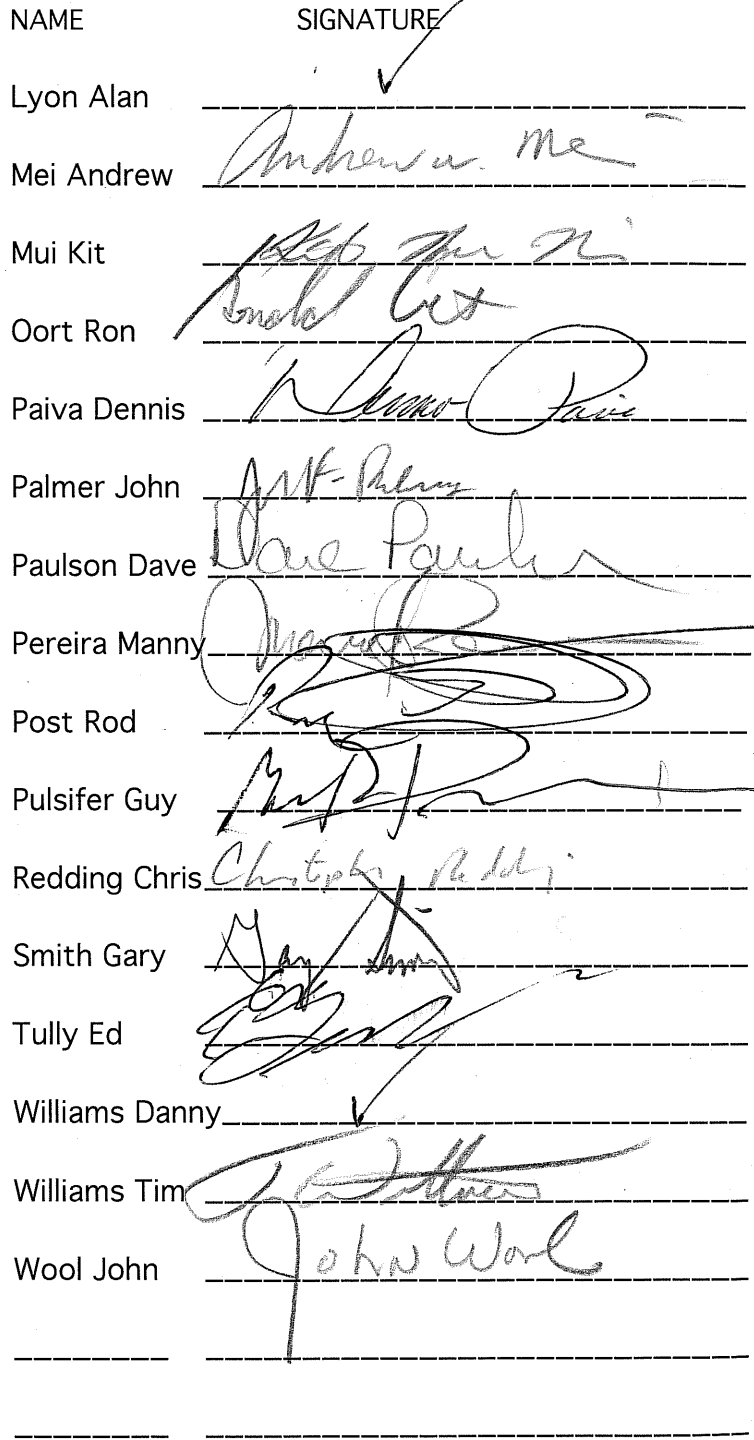 NAME SIGNATURE
Lyon Alan
Mei Andrew Andrew W. Mei
Mui Kit
Oort Ron Ronald Oort
Paiva Dennis Dennis Paiva
Palmer John Palmer
Paulson Dave Dave Paulson
Pereira Manny Manny
Post Rod
Pulsifer Guy
Redding Chris Christopher Redding
Smith Gary Gary Smith
Tully Ed
Williams Danny
Williams Tim Tim Williams
Wool John John Wool